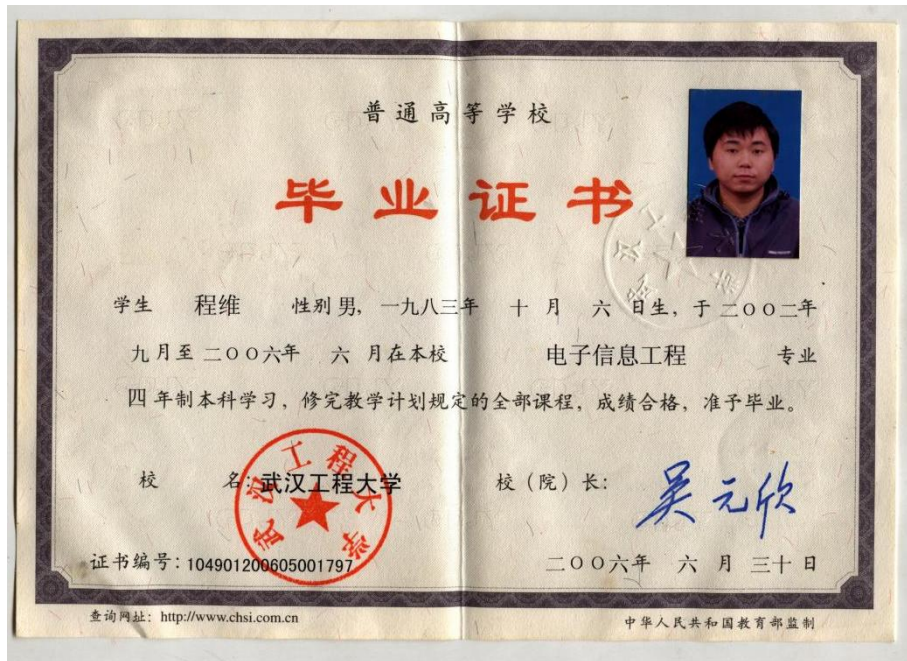 普通高等学校
毕业证书
学生 程维 性别 男, 一九八三年 十 月 六 日生, 于二〇〇二年
九月至二〇〇六年 六 月在本校 电子信息工程 专业
四 年制本科学习, 修完教学计划规定的全部课程, 成绩合格, 准予毕业。
校 名: 武汉工程大学 校(院)长: 吴元欣
武汉工程大学
证书编号: 104901200605001797 二〇〇六年 六 月 三十 日
查询网址: http://www.chsi.com.cn 中华人民共和国教育部监制